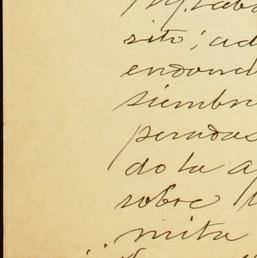 sito; ad
endond
siembr
peradas
do la a
sobre l
mita